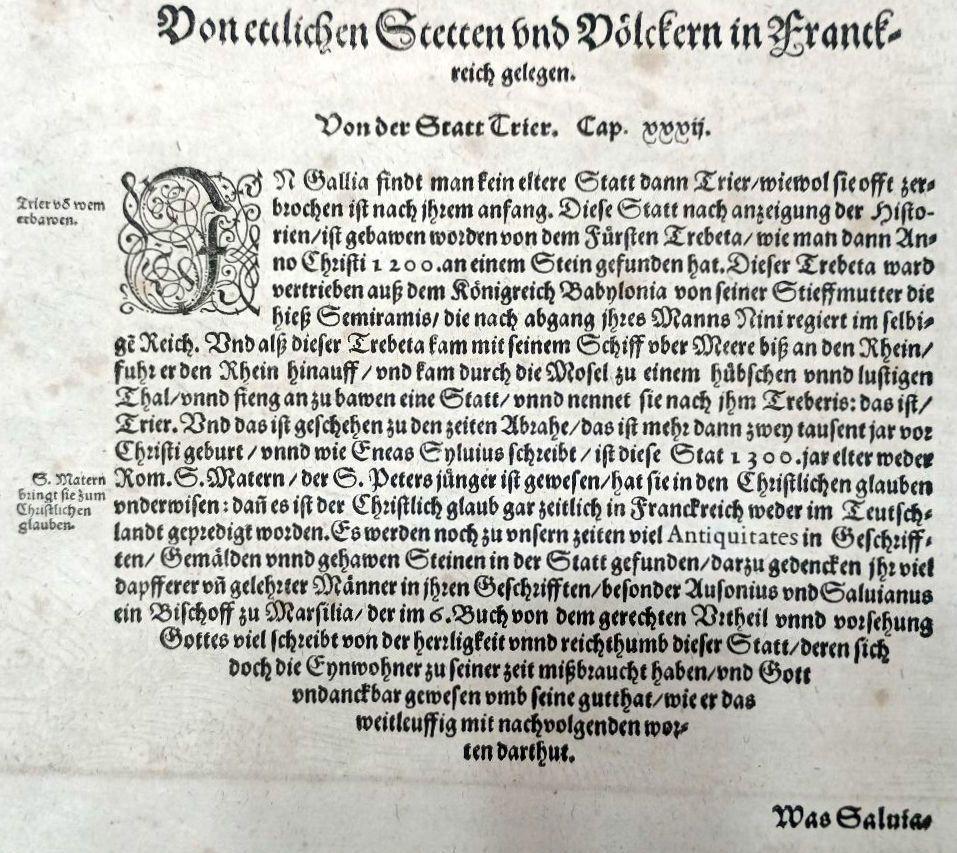 Von ettlichen Stetten vnd Völckern in Franck-
reich gelegen.
Von der Statt Trier. Cap. xxxij.
Trier võ wem
erbawen.
IN Gallia findt man kein eltere Statt dann Trier/wiewol sie offt zer-
brochen ist nach jhrem anfang. Diese Statt nach anzeigung der Histo-
rien/ist gebawen worden von dem Fürsten Trebeta/wie man dann An-
no Christi 1200.an einem Stein gefunden hat.Dieser Trebeta ward
vertrieben auß dem Königreich Babylonia von seiner Stieffmutter die
hieß Semiramis/die nach abgang jhres Manns Nini regiert im selbi-
gẽ Reich. Vnd alß dieser Trebeta kam mit seinem Schiff vber Meere biß an den Rhein/
fuhr er den Rhein hinauff/vnd kam durch die Mosel zu einem hübschen vnnd lustigen
Thal/vnnd fieng an zu bawen eine Statt/vnnd nennet sie nach jhm Treberis: das ist/
Trier.Vnd das ist geschehen zu den zeiten Abrahe/das ist mehr dann zwey tausent jar vor
Christi geburt/vnnd wie Eneas Syluius schreibt/ist diese Stat 1300.jar elter weder
S. Matern
bringt sie zum
Christlichen
glauben.
Rom.S.Matern/der S.Peters jünger ist gewesen/hat sie in den Christlichen glauben
vnderwisen: dañ es ist der Christlich glaub gar zeitlich in Franckreich weder im Teutsch-
landt gepredigt worden.Es werden noch zu vnsern zeiten viel Antiquitates in Geschriff-
ten/Gemälden vnnd gehawen Steinen in der Statt gefunden/darzu gedencken jhr viel
dapfferer vñ gelehrter Männer in jhren Geschrifften/besonder Ausonius vnd Saluianus
ein Bischoff zu Marsilia/der im 6.Buch von dem gerechten Vrtheil vnnd vorsehung
Gottes viel schreibt von der herrligkeit vnnd reichthumb dieser Statt/deren sich
doch die Eynwohner zu seiner zeit mißbraucht haben/vnd Gott
vndanckbar gewesen vmb seine gutthat/wie er das
weitleuffig mit nachvolgenden wor-
ten darthut.
Was Saluia-